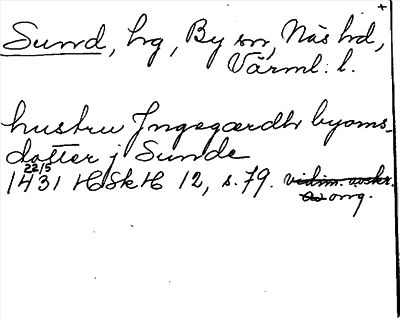 +
Sund, hg, By sn, Näs hd,
Värml. l.
hustru Jngegærdh byorns_
dotter j Sunde
22/5
1431 HSkH 12, s. 79. vidim. avskr.
av orig.